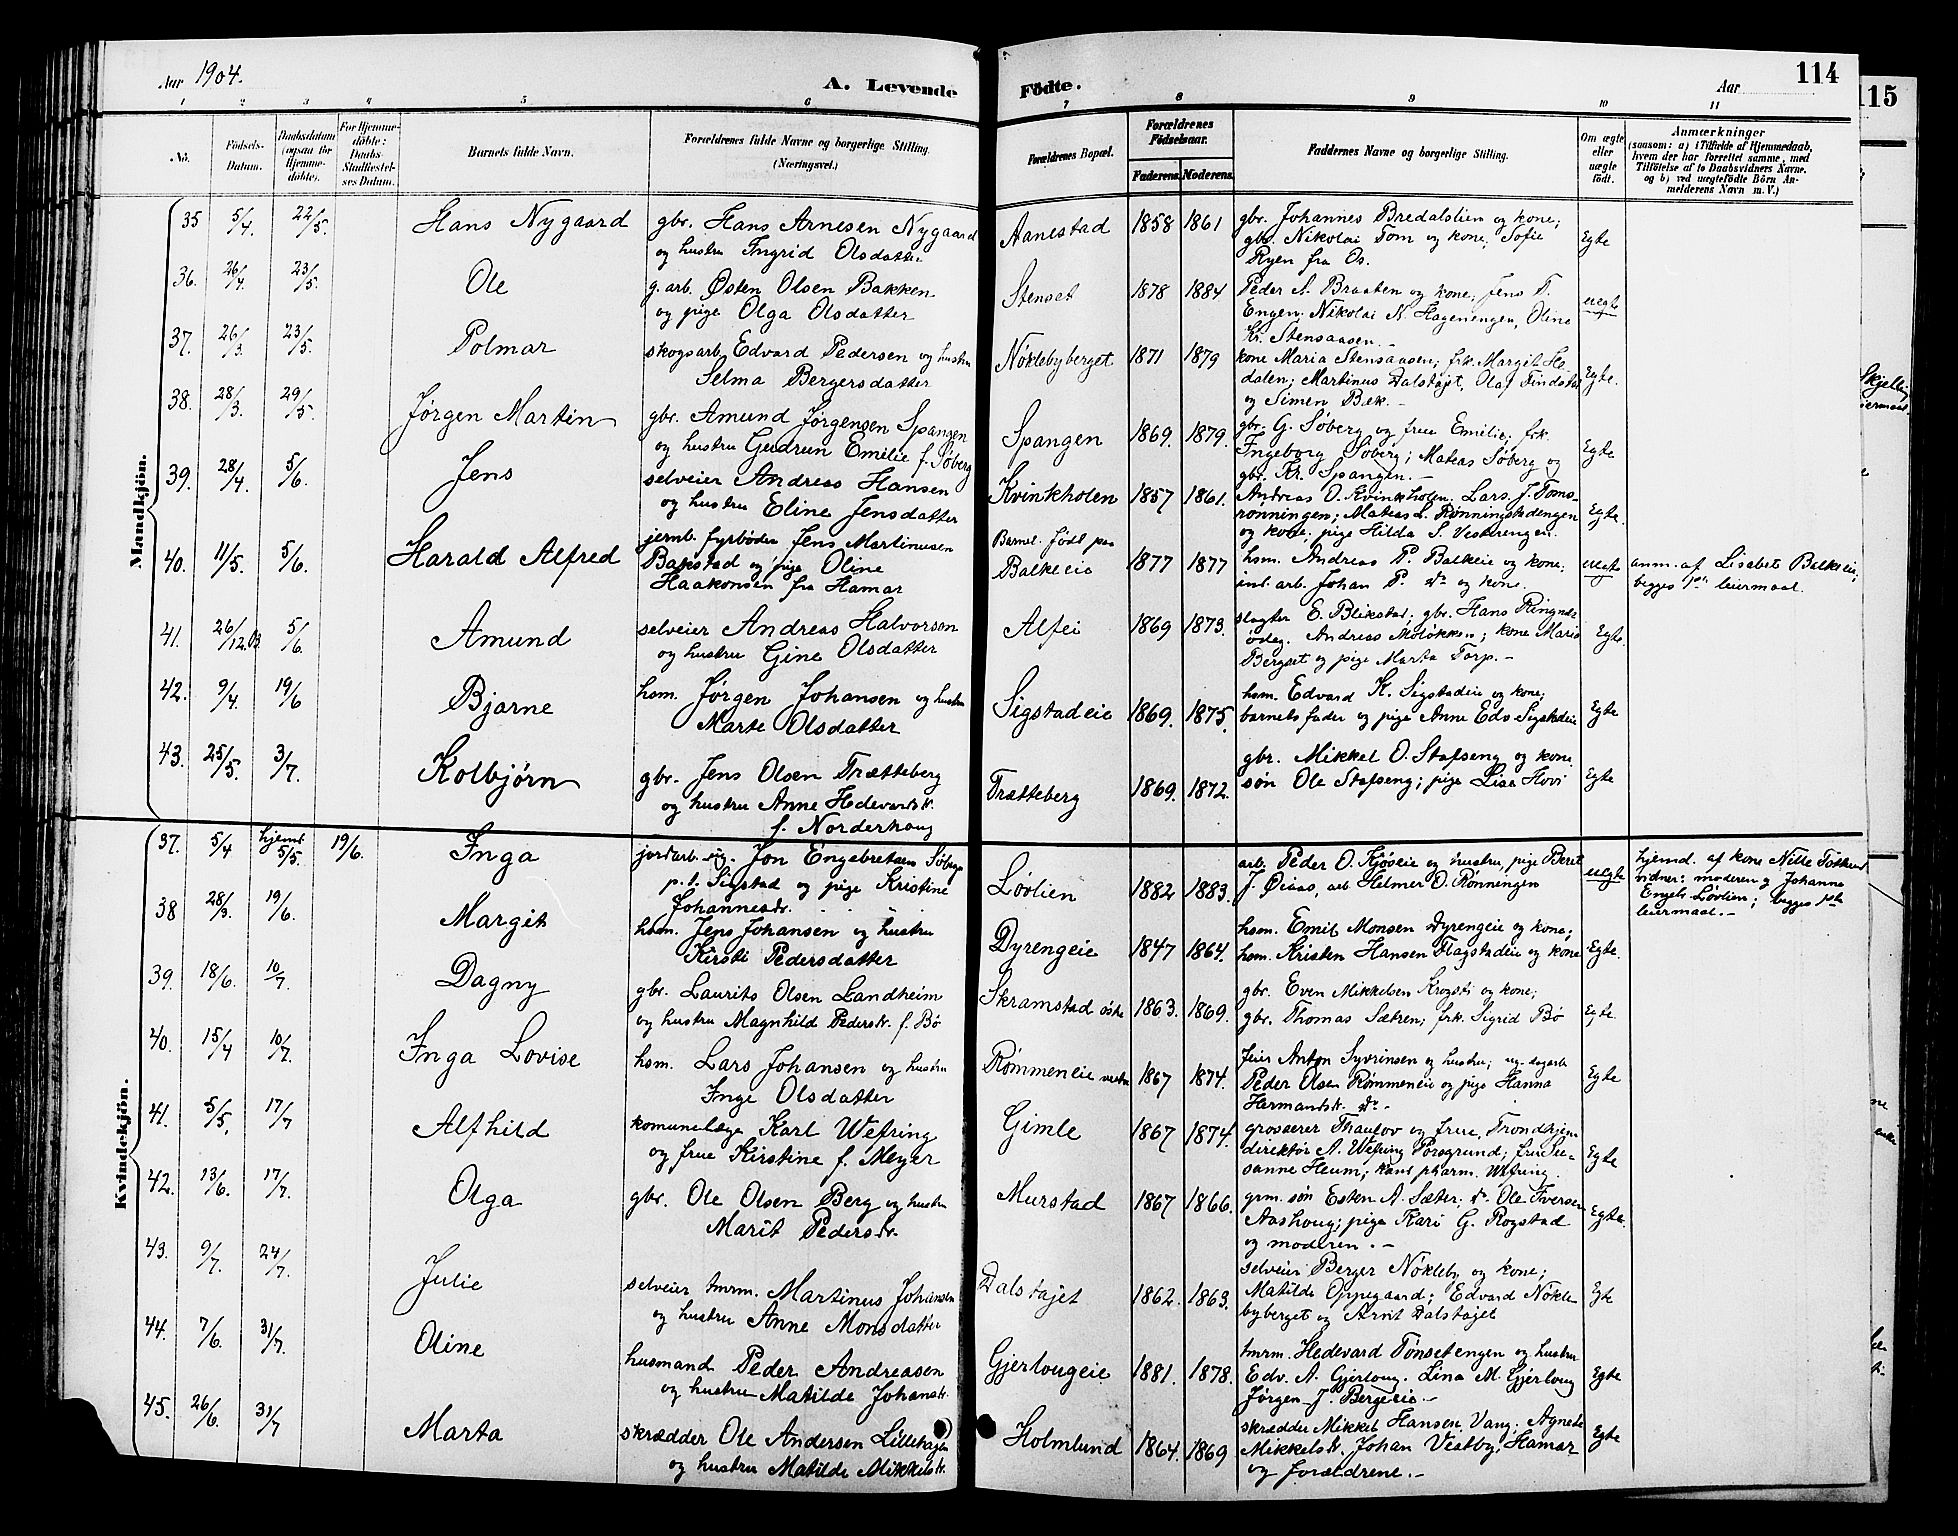 Aar 1904. A. Levende Födte. Aar 114
115
1 2 3 4 5 6 7 8 9 10 11
No. Födsels-Datum. Daabsdatum (ogsaa for Hjemme-döbte). For Hjemme-döbte: Daabs-Stadfestelses Datum. Barnets fulde Navn. Forældrenes fulde Navne og borgerlige Stilling. (Næringsvei.) Forældrenes Bopæl. Forældrenes Födselsaar. Faderens. Moderens. Faddernes Navne og borgerlige Stilling. Om ægte eller uægte födt. Anmærkninger (saasom: a) i Tilfælde af Hjemmedaab, hvem der har forrettet samme, med Tilföielse af to Daabsvidners Navne, og b) ved uægtefödte Börn Anmelderens Navn m. V.)
Mandkjön.
35 5/4. 22/5. Hans Nygaard gbr. Hans Arnesen Nygaard Aanestad 1858 1861 gbr. Johannes Bredalslien og kone;
og hustru Ingrid Olsdatter gbr. Nikolai Tom og kone, Sofie Egte
Ryen fra Os.
36. 26/4. 23/5. Ole g. arb. Østen Olsen Bakken Stenset 1878 1884 Peder A. Braaten og kone; Jens T.
og pige Olga Olsdatter Engen. Nikolai N. Hagenengen, Oline uegte
Kr. Stensaasen. -
37. 26/3. 23/5. Polmar skogsarb. Edvard Pedersen og hustru Nöklebyberget 1871 1879 kone Maria Stensaasen; frk. Margit He-
Selma Bergersdatter dalen; Martinus Dalstøjet, Olaf Findstad Egte.
og Simen Bæk. -
38. 28/3. 29/5. Jørgen Martin gbr. Amund Jørgensen Spangen Spangen 1869. 1879. gbr. G. Søberg og frue Emilie; frk.
og hustru Gudrun Emilie f. Søberg Ingeborg Søberg; Mateas Søberg og Egte
gbr. Kr. Spangen. -
39. 28/4. 5/6. Jens selveier Andreas Hansen Kvinkholen 1857 1861. Andreas O. Kvinkholen. Lars J. Toms-
og hustru Eline Jensdatter ronningen; Mateas L. Rønningstadengen Egte.
og kone; pige Hilda S. Vesterengen.
40. 11/5. 5/6. Harald Alfred jernb. fyrbøder Jens Martinusen Barnet født paa
Bakstad og pige Oline Balkeeie 1877 1877 hsm. Andreas P. Balkeie og kone; uegte anm. af Lisabet Balkeie;
Haakonsen fra Hamar ind. arb. Johan P. do og kone. begges 1ste leiermaal.
41. 26/12.03. 5/6. Amund selveier Andreas Halvorson Alfei 1869 1873. slagter E. Blikstad; gbr. Hans Ringnes
og hustru Gine Olsdatter ødeg. Andreas Moløkken; kone Marie Egte.
Bergset og pige Marta Torp. -
42. 9/4. 19/6 Bjarne hsm. Jørgen Johansen og hustru Sigstadeie 1869. 1875. hsm. Edvard K. Sigstadeie og kone;
Marte Olsdatter barnets fader og pige Anne Eds Sigstadeie Egte
43. 25/5. 3/7. Kolbjørn gbr. Jens Olsen Trætteberg Trætteberg 1869. 1872. gbr. Mikkel O. Stafseng og kone
og hustru Anne Hedevardsdr. søn Ole Stafseng; pige Lisa Hovi Egte
f. Norderhaug
Kvindekjön.
37. 5/4 hjemd. 5/5. 19/6. Inga jordarb. ug. Jon Engebretsen Søberg Løvlien 1882 1883. arb. Peder O. Kjøseie og hustru, pige Beret uegte hjemd. af kone Nille
p.t. Sigstad og pige Kristine J. Øiaas, arb. Helmer O. Rønningen vidner: moderen og Johanne
Johannesdr. Engels Løvlien; begges 1ste
leiermaal. -
38 28/3. 19/6. Margit hsm. Jens Johansen og hustru Dyrengeie 1847 1864. hsm. Emil Monsen Dyrengeie og kone;
Kirsti Pedersdatter hsm. Kristen Hansen Flagstadeie og kone Egte.
39. 18/6. 10/7. Dagny gbr. Laurits Olsen Landheim Skramstad østre 1863. 1869. gbr. Even Mikkelsen Krogsti og kone;
og hustru Magnhild Pedersdr. f. Bø gbr. Thomas Sætren; frk. Sigrid Bø Egte.
40. 15/4 10/7. Inga Lovise hsm. Lars Johansen og hustru Rømmeneie vestre 1867 1874. feier Anton Syvrinsen og hustru; ug. dagarb.
Inge Olsdatter Peder Olsen Rømmeneie og pige Hanna Egte
Harmansdr. do -
41. 5/5. 17/7 Alfhild komunelæge Karl Wefring Gimle 1867 1874. grosserer Thaulov og frue, Trondhjem
og frue Kirstine f. Meyer direktør A. Wefring Porsgrund; frue Su-
sanne Heum; kand. pharm. Wefring. Egte
42. 13/6. 17/7. Olga gbr. Ole Olsen Berg og hustru Murstad 1867 1866. grm. søn Esten A. Sæter; do. Ole Iversen
Marit Pedersdr. Aashoug; pige Kari G. Rogstad Egte.
og moderen. -
43. 9/7. 24/7. Julie selveier tmrm. Martinus Johansen Dalstøjet 1862. 1863. selveier Berger Nökleby og kone;
og hustru Anne Monsdatter Matilde Oppegaard; Edvard Nökle- Egte
byberget og Arnt Dalstøjet
44. 7/6. 31/7. Oline husmand Peder Andreasen Gjerlougeie 1881. 1878. tmrm. Hedevard Tønsetengen og hustru
og hustru Matilde Johansdr. Edv. A. Gjerloug. Lina M. Gjerloug Egte
Jørgen J. Bergeeie -
45. 26/6. 31/7 Marta skrædder Ole Andersen Lillehagen Holmlund 1864. 1869 skrædder Mikkel Hansen, Vang. Agnete
og hustru Matilde Mikkelsdr. Mikkelsdr. Johan Vestby, Hamar Egte
og forældrene. -